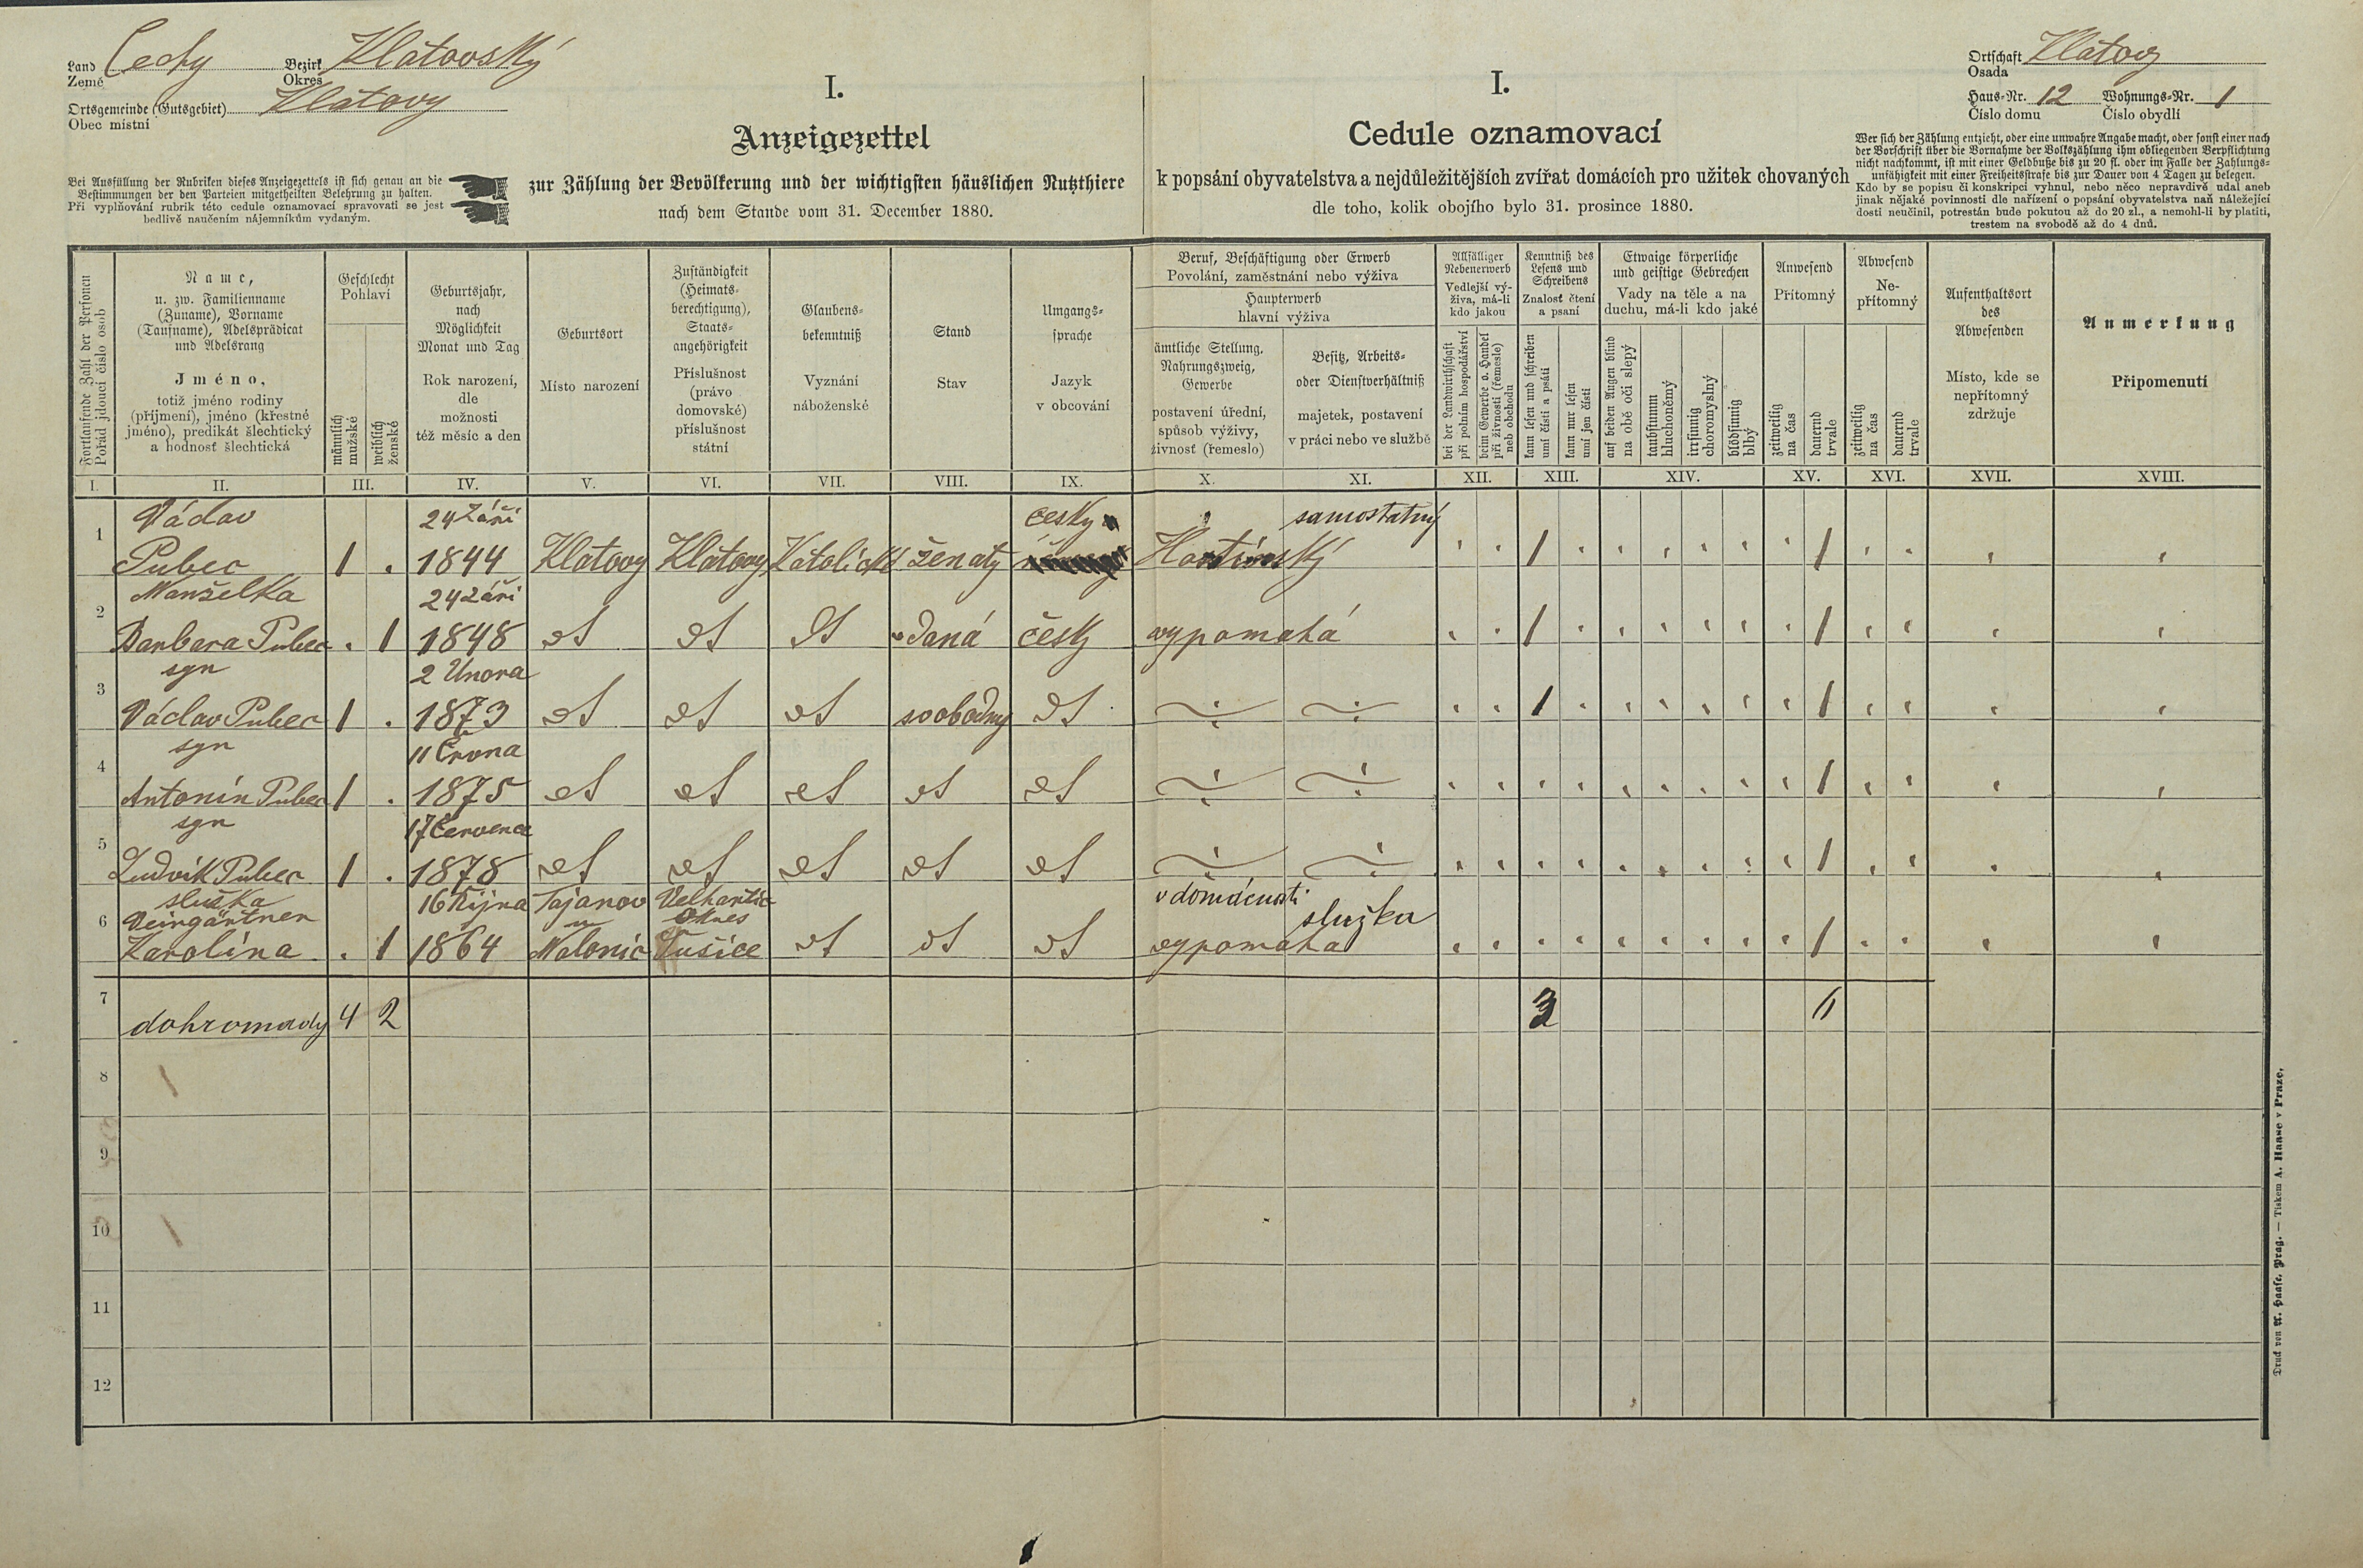 Land Čechy Bezirk Klatovský
Země Okres
Ortsgemeinde (Gutsgebiet) Klatovy
Obec místní
Bei Ausfüllung der Rubriken dieses Anzeigezettels ist sich genau an die
Bestimmungen der den Parteien mitgetheilten Belehrung zu halten.
Při vyplňování rubrik této cedule oznamovací spravovati se jest
bedlivě naučením nájemníkům vydaným.
I.
Anzeigezettel
zur Zählung der Bevölkerung und der wichtigsten häuslichen Nutzthiere
nach dem Stande vom 31. December 1880.
I.
Cedule oznamovací
k popsání obyvatelstva a nejdůležitějších zvířat domácích pro užitek chovaných
dle toho, kolik obojího bylo 31. prosince 1880.
Ortschaft Klatovy
Osada
Haus-Nr. 12 Wohnungs-Nr. 1
Číslo domu Číslo obydlí
Wer sich der Zählung entzieht, oder eine unwahre Angabe macht, oder sonst einer nach
der Vorschrift über die Vornahme der Volkszählung ihm obliegenden Verpflichtung
nicht nachkommt, ist mit einer Geldbuße bis zu 20 fl. oder im Falle der Zahlungs-
unfähigkeit mit einer Freiheitsstrafe bis zur Dauer von 4 Tagen zu belegen.
Kdo by se popisu či konskripci vyhnul, nebo něco nepravdivě udal aneb
jinak nějaké povinnosti dle nařízení o popsání obyvatelstva naň náležející
dosti neučinil, potrestán bude pokutou až do 20 zl., a nemohl-li by platiti,
trestem na svobodě až do 4 dnů.
Fortlaufende Zahl der Personen
Pořád jdoucí číslo osob
Name,
u. zw. Familienname
(Zuname), Vorname
(Taufname), Adelsprädicat
und Adelsrang
Jméno,
totiž jméno rodiny
(příjmení), jméno (křestné
jméno), predikát šlechtický
a hodnosť šlechtická
Geschlecht
Pohlaví
männlich
mužské
weiblich
ženské
Geburtsjahr,
nach
Möglichkeit
Monat und Tag
Rok narození,
dle
možnosti
též měsíc a den
Geburtsort
Místo narození
Zuständigkeit
(Heimats-
berechtigung),
Staats-
angehörigkeit
Příslušnost
(právo
domovské)
příslušnost
státní
Glaubens-
bekenntniß
Vyznání
náboženské
Stand
Stav
Umgangs-
sprache
Jazyk
v obcování
Beruf, Beschäftigung oder Erwerb
Povolání, zaměstnání nebo výživa
Haupterwerb
hlavní výživa
ämtliche Stellung,
Nahrungszweig,
Gewerbe
postavení úřední,
spůsob výživy,
živnosť (řemeslo)
Besitz, Arbeits-
oder Dienstverhältniß
majetek, postavení
v práci nebo ve službě
Allfälliger
Nebenerwerb
Vedlejší vý-
živa, má-li
kdo jakou
bei der Landwirthschaft
při polním hospodářství
beim Gewerbe o. Handel
při živnosti (řemesle)
neb obchodu
Kenntniß des
Lesens und
Schreibens
Znalosť čtení
a psaní
kann lesen und schreiben
umí čísti a psáti
kann nur lesen
umí jen čísti
Etwaige körperliche
und geistige Gebrechen
Vady na těle a na
duchu, má-li kdo jaké
auf beiden Augen blind
na obě oči slepý
taubstumm
hluchoněmý
irrsinnig
choromyslný
blödsinnig
blbý
Anwesend
Přítomný
zeitweilig
na čas
dauernd
trvale
Abwesend
Ne-
přítomný
zeitweilig
na čas
dauernd
trvale
Aufenthaltsort
des
Abwesenden
Místo, kde se
nepřítomný
zdržuje
Anmerkung
Připomenutí
I. II. III. IV. V. VI. VII. VIII. IX. X. XI. XII. XIII. XIV. XV. XVI. XVII. XVIII.
Václav 24 Září česky samostatný
1 Pubec 1 . 1844 Klatovy Klatovy Katolické ženatý 1 1
Manželka 24 Září
2 Barbara Pubec . 1 1848 dt dt dt vdaná česky vypomahá 1 1
syn 2 Února
3 Václav Pubec 1 . 1873 dt dt dt svobodny dt 1 1
syn 11 Črvna
4 Antonín Pubec 1 . 1875 dt dt dt dt dt 1
syn 17 Července
5 Ludvík Pubec 1 . 1878 dt dt dt dt dt 1
služka 16 Října Tajanov Velhartic v domácnosti
Veingärtner u okres služka
6 Karolína . 1 1864 Malonic Sušice dt dt dt vypomaha 1
7 dohromady 4 2 3 6
8
9
10
11
12
Druck von A. Haase, Prag. — Tiskem A. Haase v Praze.